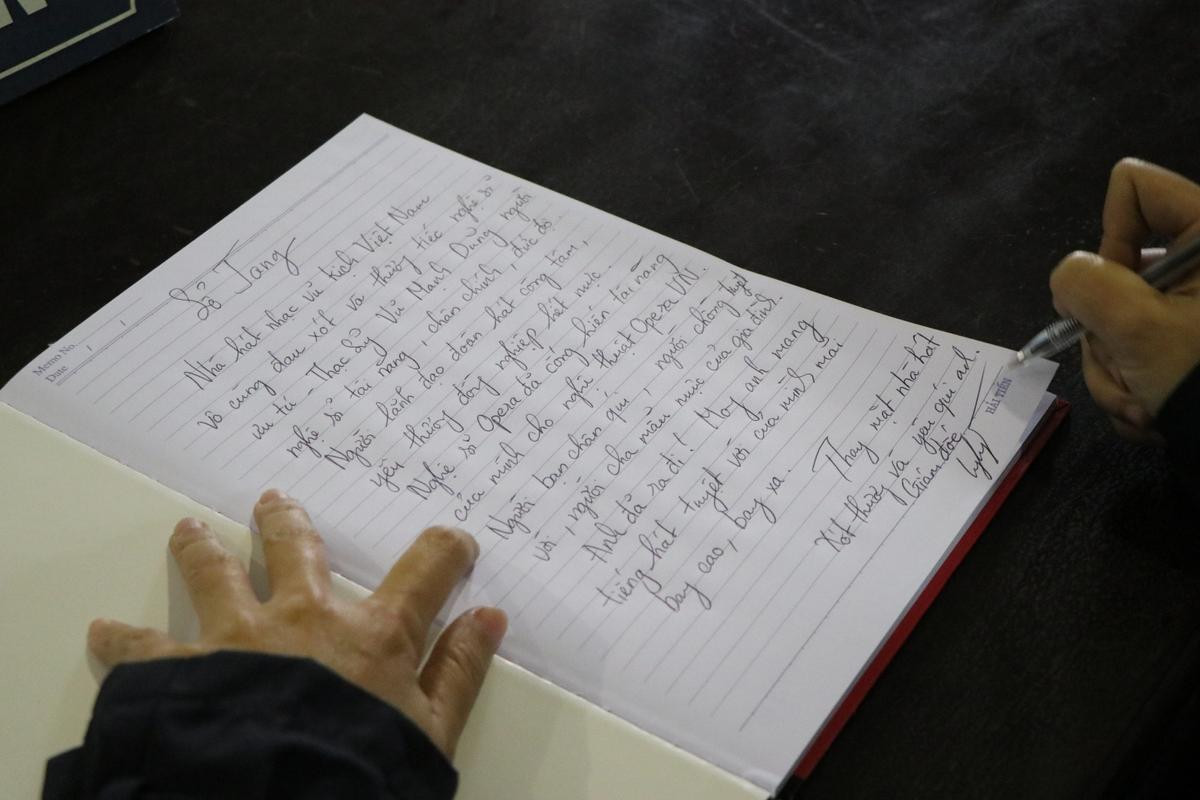 Memo No.
Date
Sổ Tang
Nhà hát nhạc vũ kịch Việt Nam
vô cùng đau xót và thương tiếc nghệ sĩ
ưu tú - Thạc sỹ Vũ Mạnh Dũng người
nghệ sĩ tài năng, chân chính, đức độ.
Người lãnh đạo đoàn hát công tâm,
yêu thương đồng nghiệp hết mực.
Nghệ sĩ Opera đã cống hiến tài năng
của mình cho nghệ thuật Opera VN.
Người bạn chân quí, người chồng tuyệt
vời, người cha mẫu mực của gia đình.
Anh đã ra đi! Mong anh mang
tiếng hát tuyệt vời của mình mãi
bay cao, bay xa.
Thay mặt nhà hát
Xót thương và yêu quí anh.
Giám đốc
HẢI TIẾN